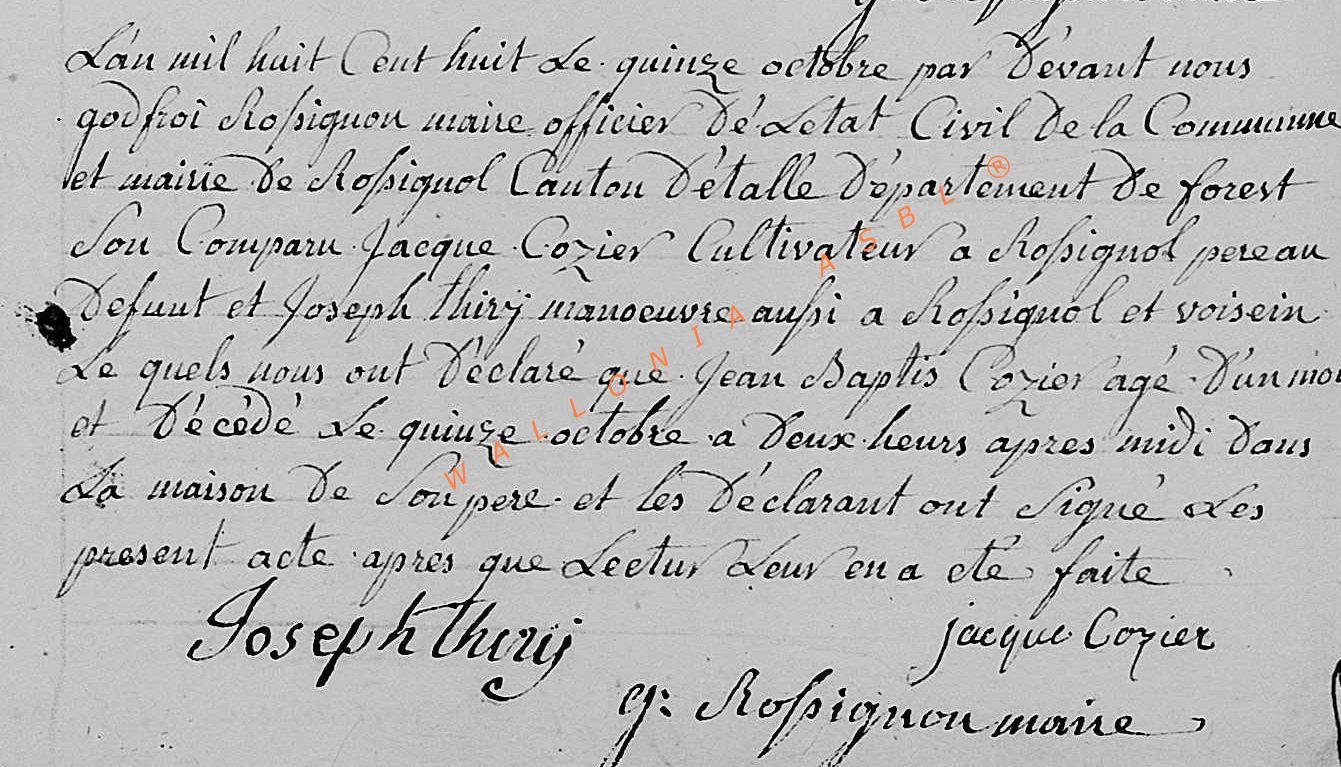 L'an mil huit Cent huit Le quinze octobre par Dévant nous
godfroi Rossignon maire officier Dé Letat Civil De la Communne
et mairie De Rossignol Canton D'étalle Département De forest
Son Comparu Jacque Cozier Cultivateur a Rossignol pere au
Defunt et Joseph thirÿ manoeuvre aussi a Rossignol et voisein
Le quels nous ont Déclaré que Jean Baptis Cozier agé D'un moi
et Décédé Le quinze octobre a Deux heurs apres midi Dans
La maison De Son pere et les Déclarant ont Signé Les
present acte apres que Lectur Leur en a eté faite
Joseph thirÿ
jacque Cozier
g: Rossignon maire
WALLONIA ASBL ®